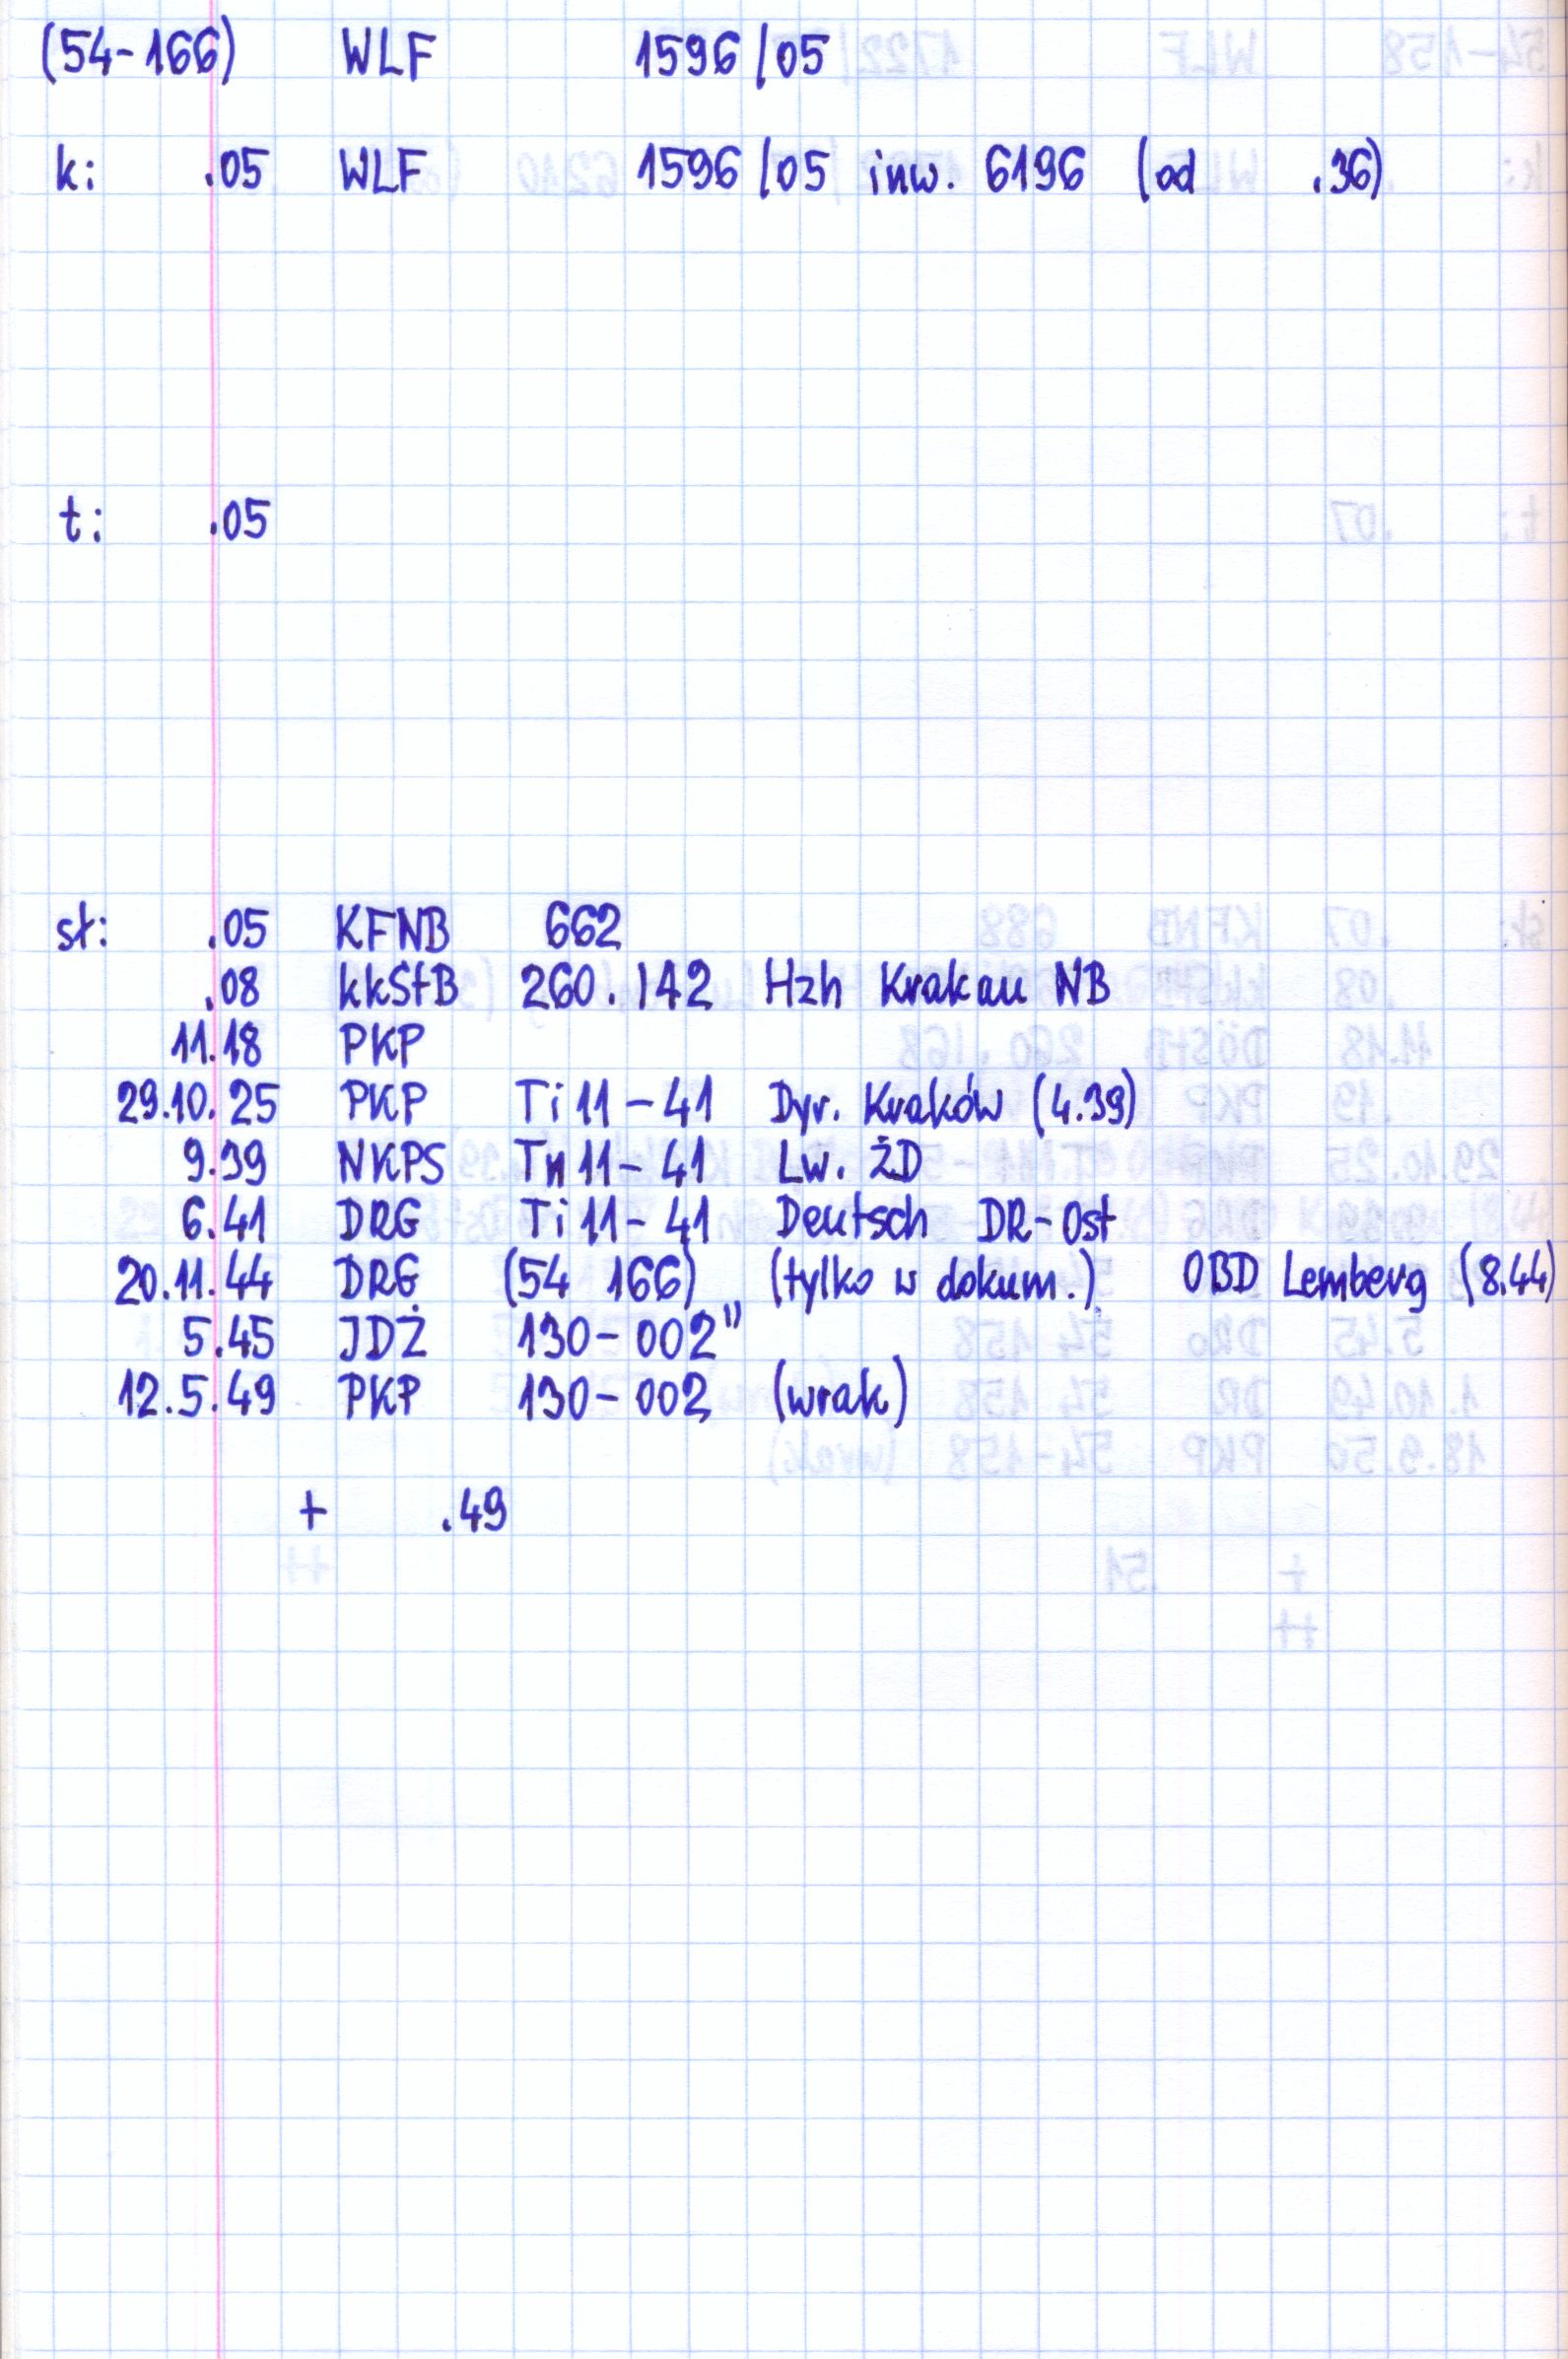 (54-166) WLF 1596/05
k: .05 WLF 1596/05 inw. 6196 (od .36)
t: .05
st: .05 KFNB 662
.08 kkStB 260.142 Hzh Krakau NB
11.18 PKP
29.10.25 PKP Ti 11-41 Dyr. Kraków (4.39)
9.39 NKPS Tn 11-41 Lw. ŻD
6.41 DRG Ti 11-41 Deutsch DR-Ost
20.11.44 DRG (54 166) (tylko w dokum.) OBD Lemberg (8.44)
5.45 JDŻ 130-002"
12.5.49 PKP 130-002 (wrak)
+ .49